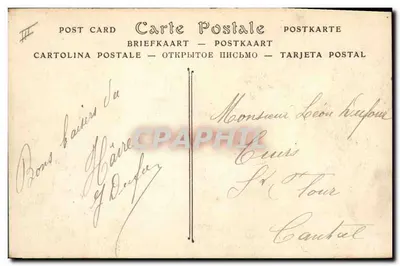 III
POST CARD Carte Postale POSTKARTE
BRIEFKAART — POSTKAART
CARTOLINA POSTALE — ОТКРЫТОЕ ПИСЬМО — TARJETA POSTAL
Bons baisers du
Hâvre
Monsieur Léon
Cuirs
St Flour
Cantal
CPAPHIL